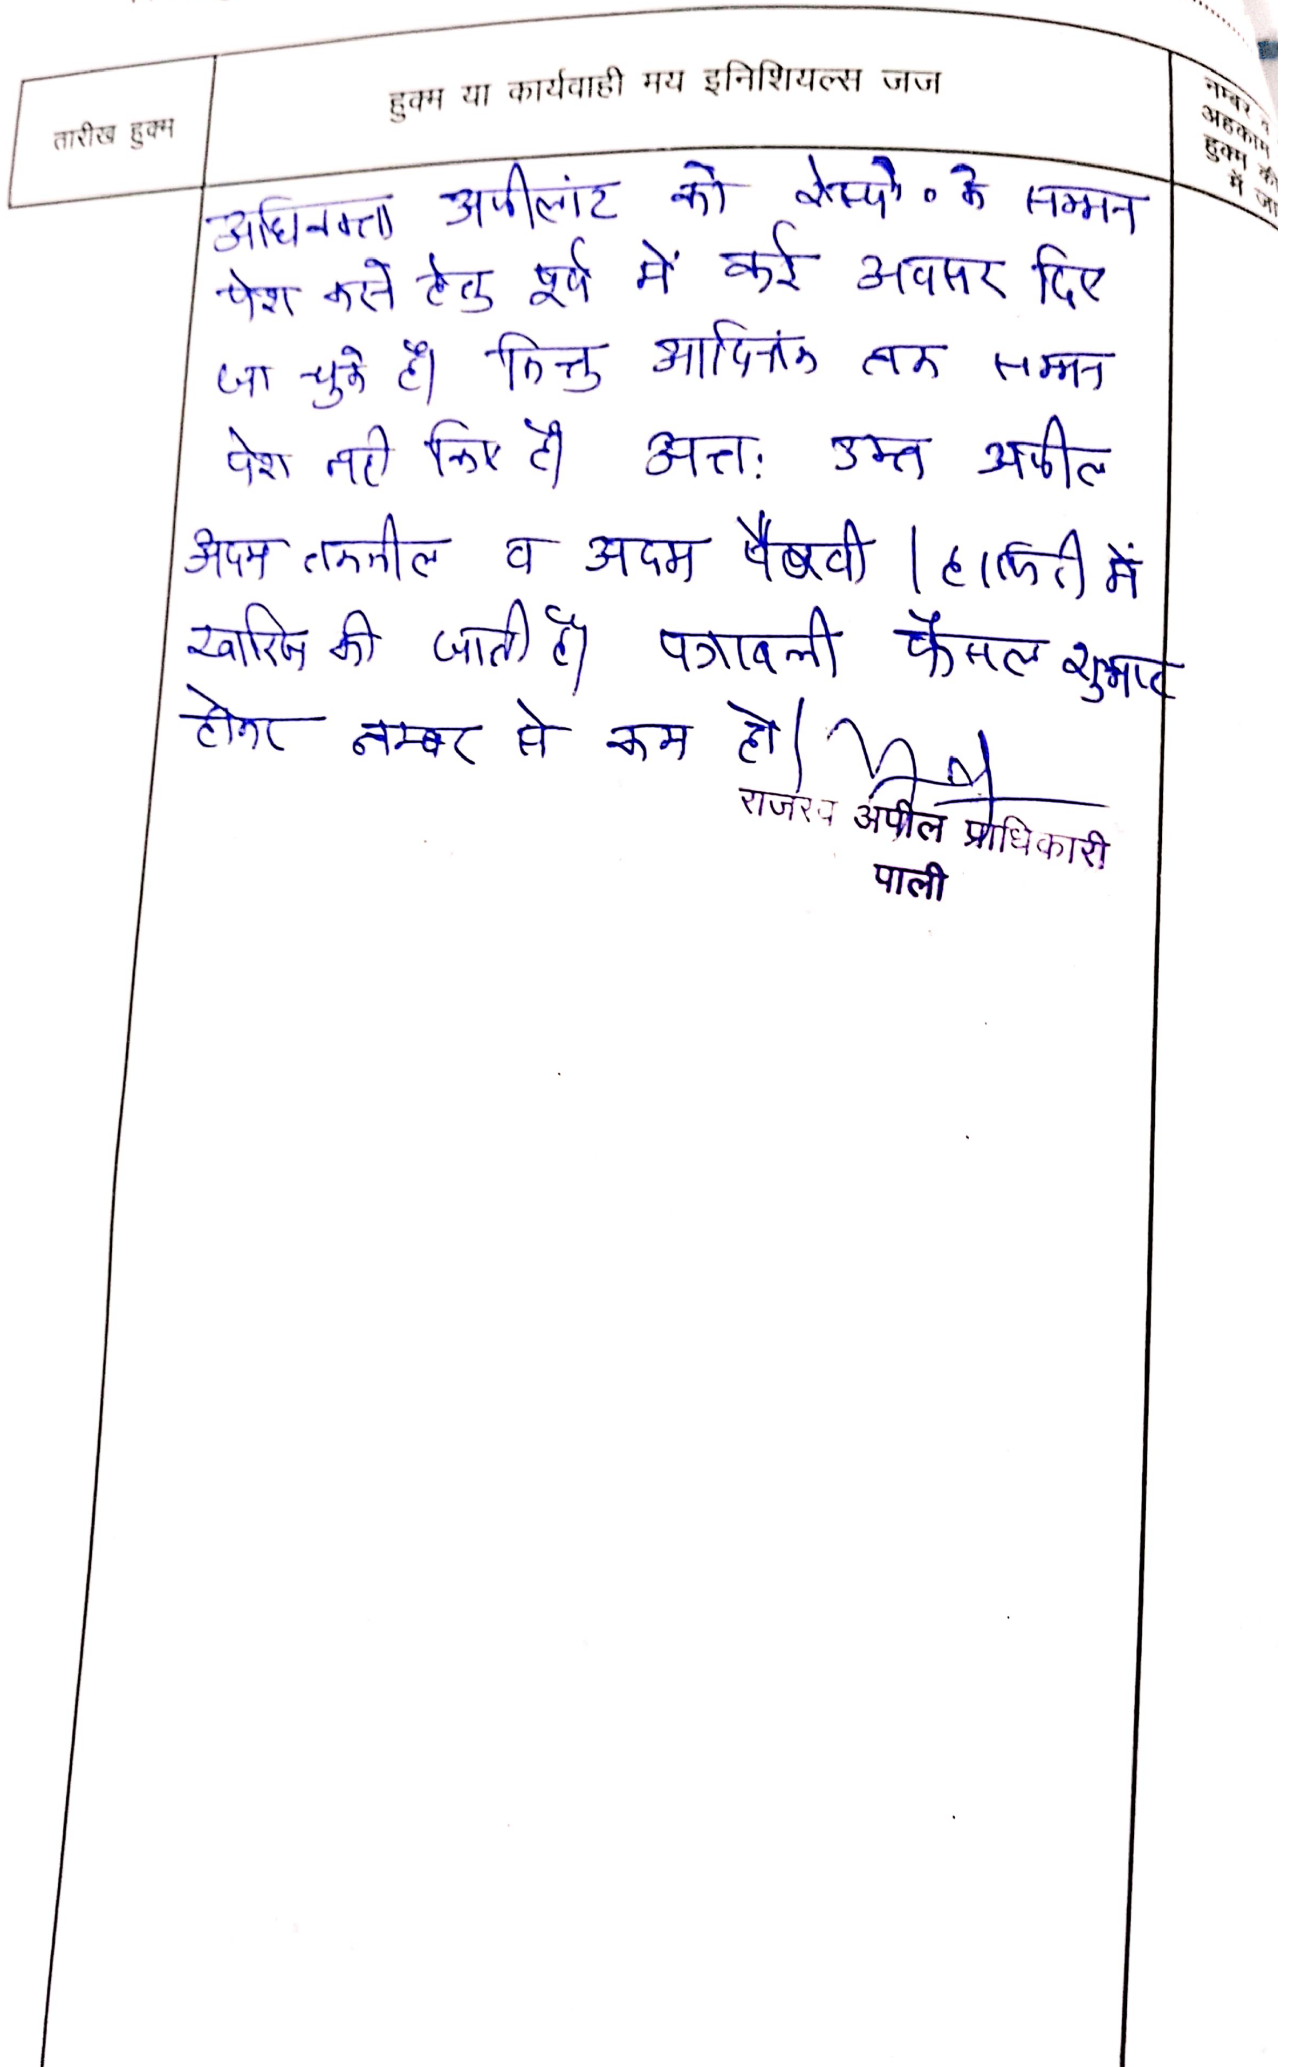 तारीख हुक्म
हुक्म या कार्यवाही मय इनिशियल्स जज
नम्बर व
अहकाम
हुक्म की
में जा
अधिवक्ता अपीलांट को रेस्पो० के सम्मन
पेश करने हेतु पूर्व में कई अवसर दिए
जा चुके है। किन्तु आदिनांक तक सम्मन
पेश नही किए है। अत्तः उक्त अपील
अदम तकमील व अदम पैरवी / हाजिरी में
खारिज की जाती है। पत्रावली फैसल शुमार
होकर नम्बर से कम हो।
राजस्व अपील प्राधिकारी
पाली